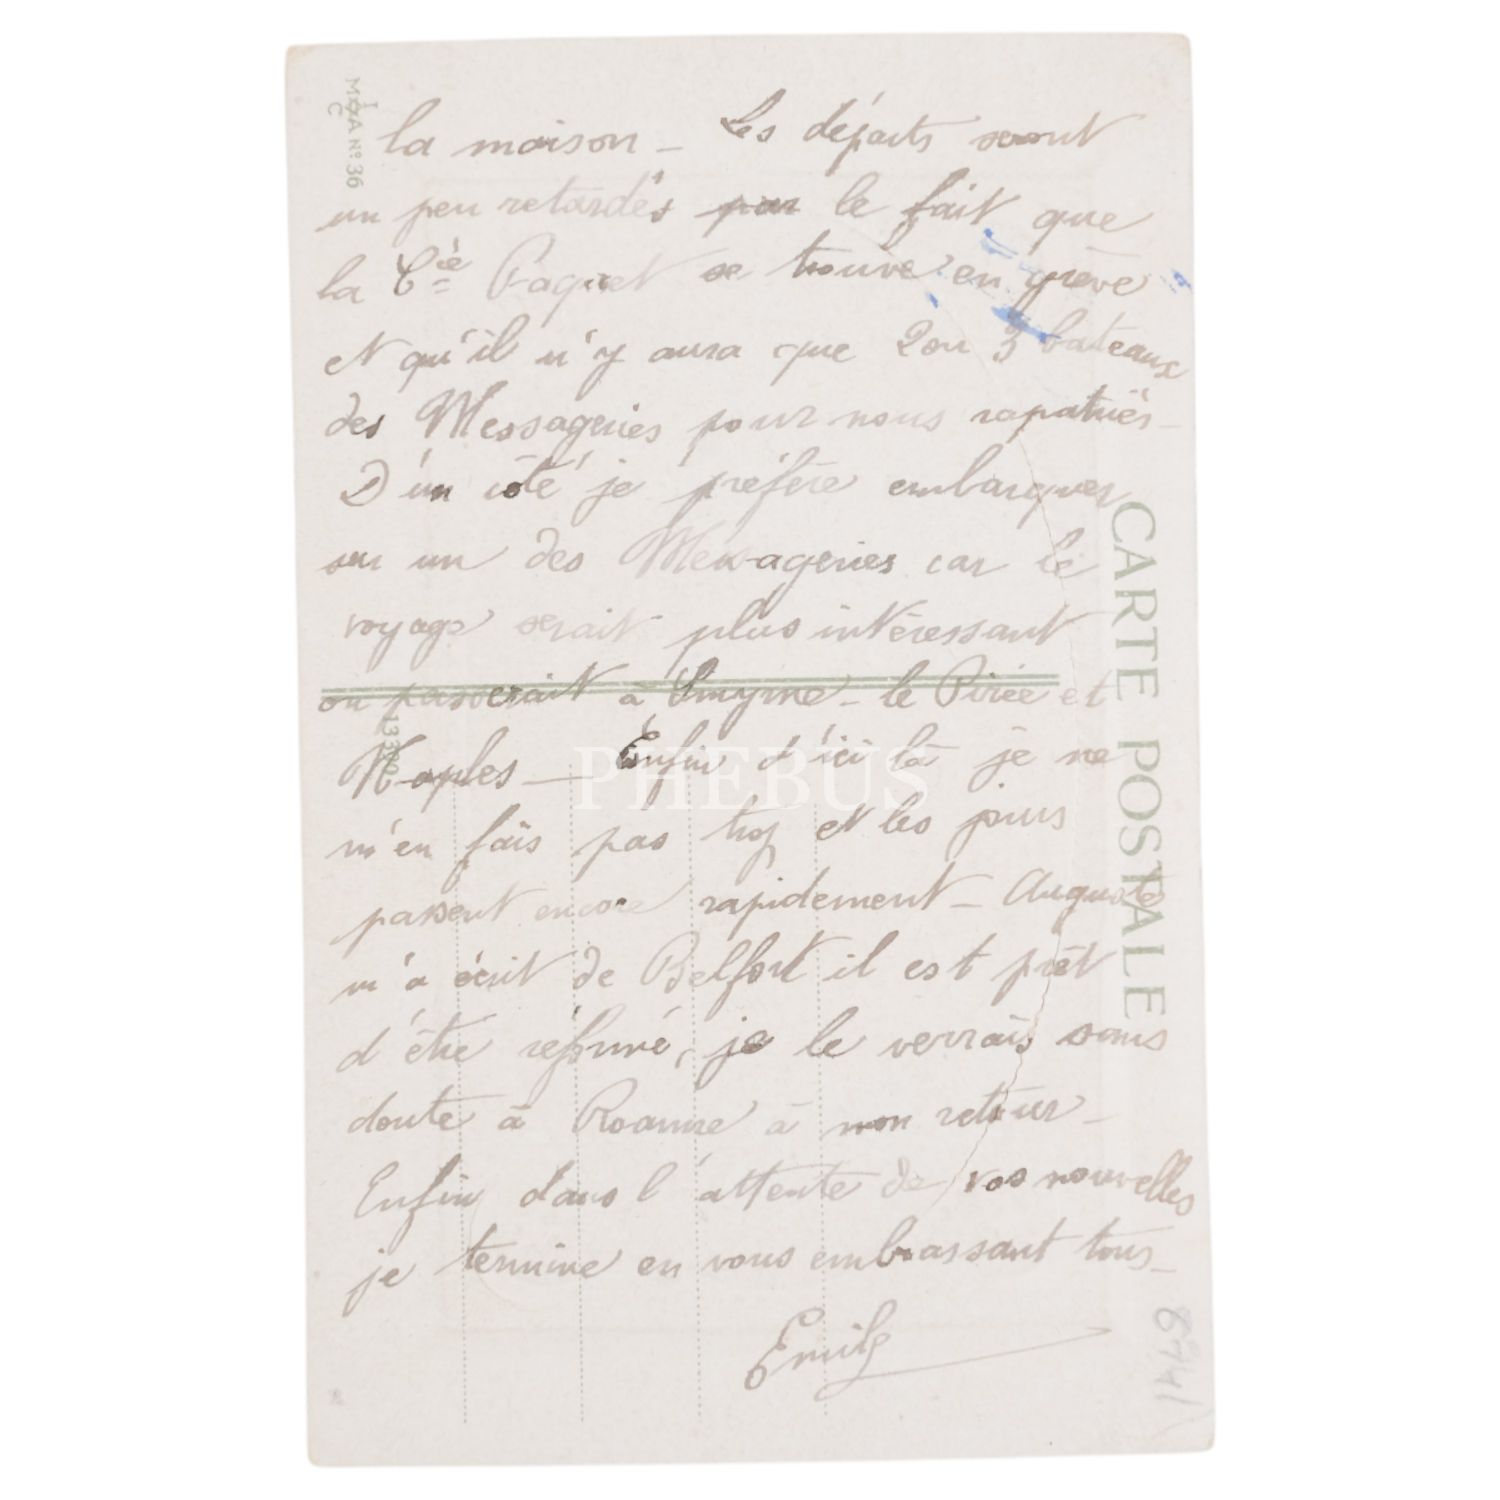 la maison _ Les départs seront
un peu retardés par le fait que
la Cie Paquet se trouve en grève
et qu'il n'y aura que 2 ou 3 bateaux
des Messageries pour nous rapatriés _
D'un côté je préfère embarquer
sur un des Messageries car le
voyage serait plus intéressant
on passerait à Smyrne _ le Pirée et
Naples _ Enfin d'ici là je ne
m'en fais pas trop et les jours
passent encore rapidement _ Auguste
m'a écrit de Belfort il est prêt
d'être réformé, je le verrais sans
doute à Roanne à mon retour _
Enfin dans l'attente de vos nouvelles
je termine en vous embrassant tous _
Emile
CARTE POSTALE
M I A C No. 36
PHEBUS